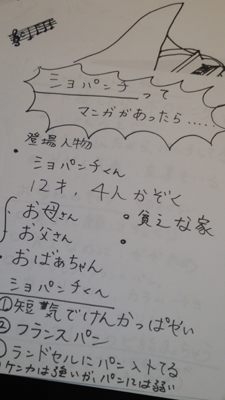 ショパンチって
マンガがあったら.....
登場人物
・ショパンチくん
12才, 4人かぞく
お母さん
・貧乏な家
お父さん
・おばぁちゃん
ショパンチくん
①短気でけんかっぱやい
②フランスパン
ランドセルにパン入ってる
ケンカは強いが、パンには弱い